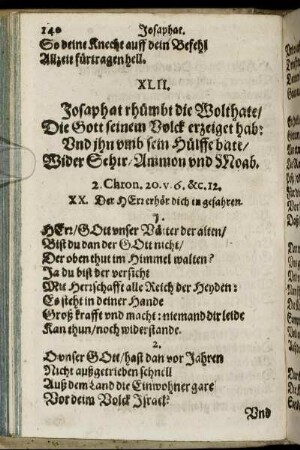 140 Josaphat.
So deine Knecht auff dein Befehl
Allzeit fürtragen hell.
XLII.
Josaphat rhümbt die Wolthate/
Die Gott seinem Volck erzeiget hab:
Vnd jhn vmb sein Hülffe batt/
Wider Sehir/Ammon vnd Moab.
2. Chron. 20. v. 6. &c. 12.
XX. Der HErr erhör dich in gefahren.
1.
HErr/GOtt vnser Vätter der alten/
Bist du dan der GOtt nicht/
Der oben thut im Himmel walten?
Ja du bist der versicht
Mit Herrschafft alle Reich der Heyden:
Es steht in deiner Hande
Groß krafft vnd macht: niemand dir leide
Kan thun/noch widerstande.
2.
O vnser GOtt/hast dan vor Jahren
Nicht außgetrieben schnell
Auß dem Land die Einwohner gare
Vor deim Volck Israel?
Vnd